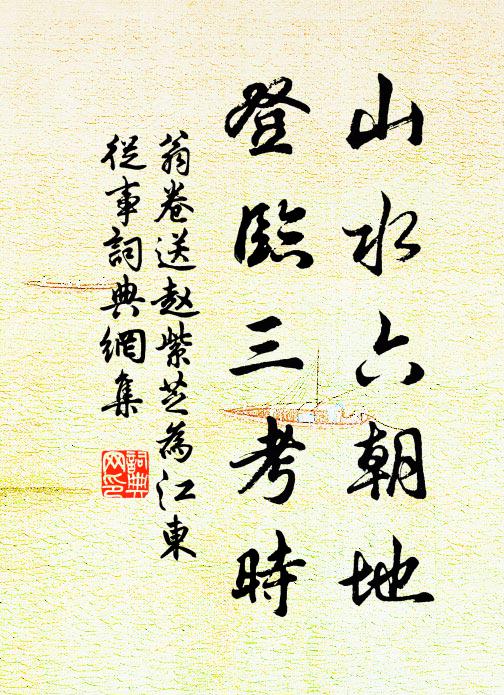 山水六朝地
登臨三考時
翁卷送赵紫芝為江東
從事詞典網集
詞典
网印